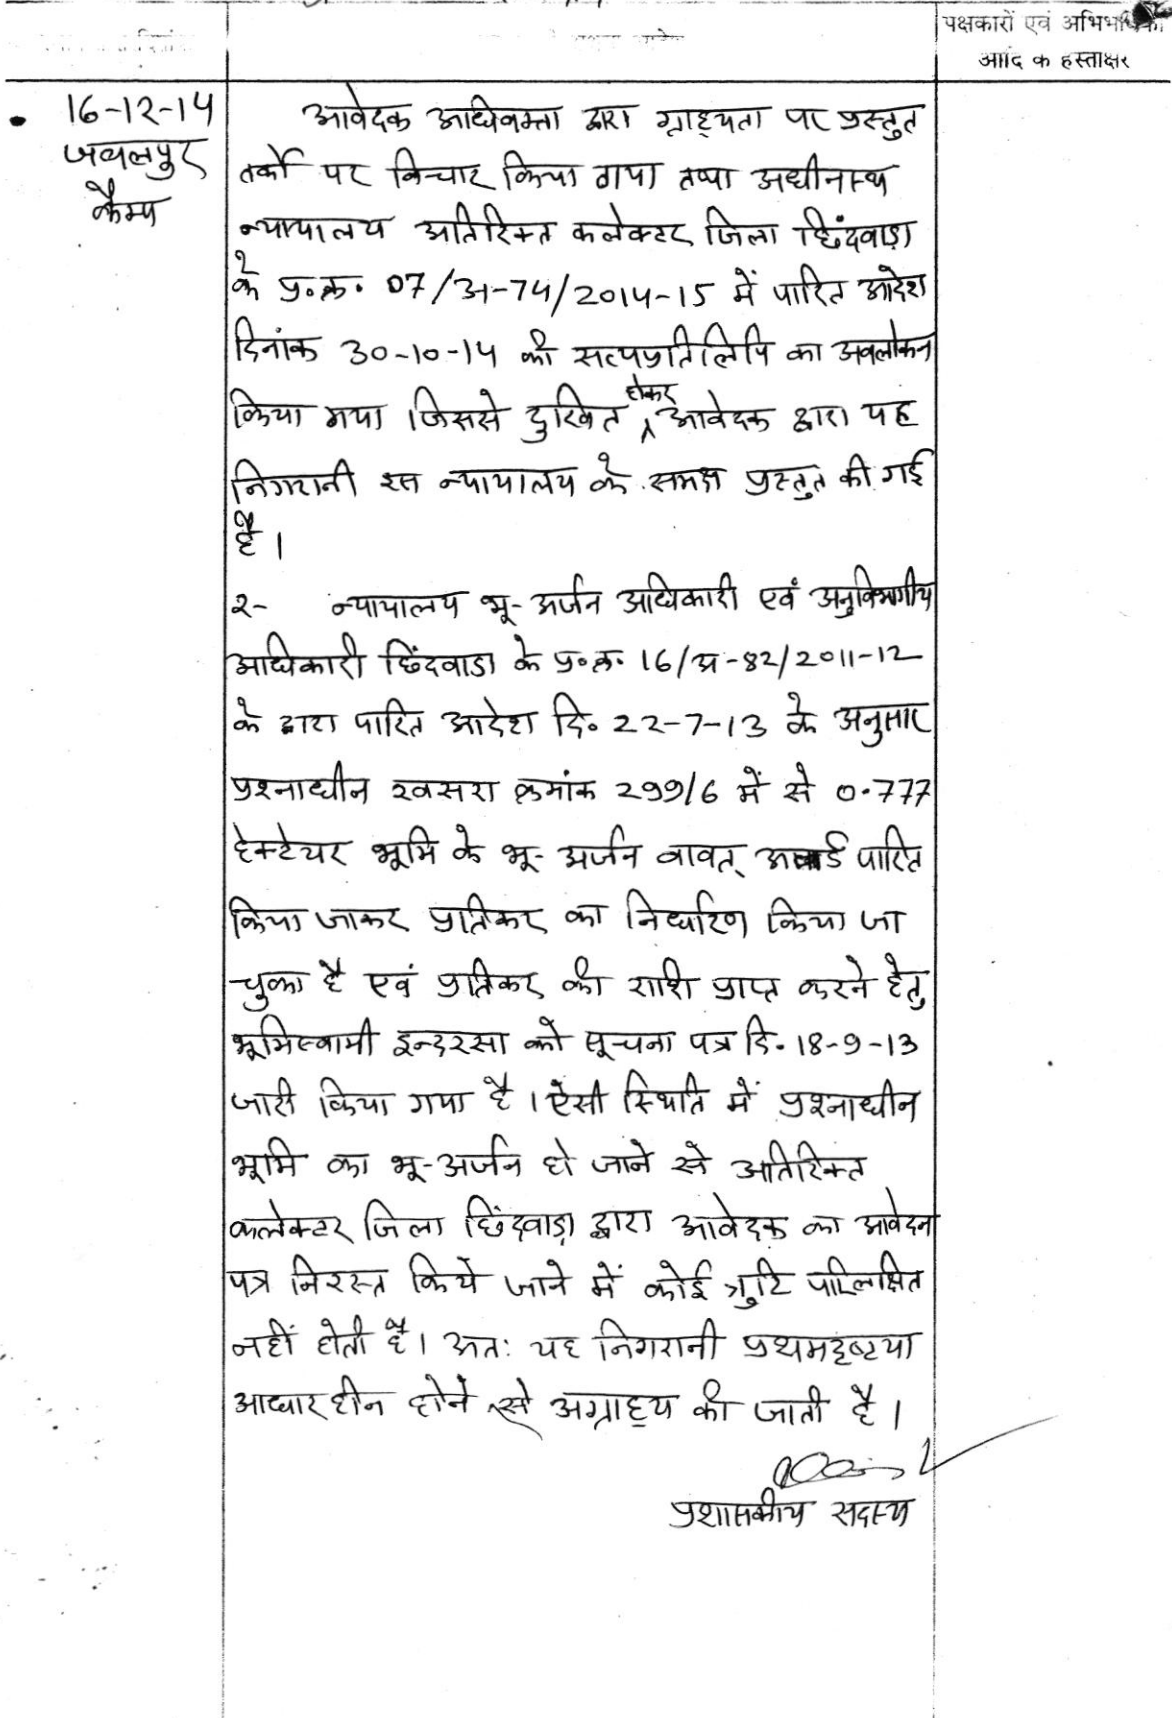 पक्षकारों एवं अभिभाषकों
आदि के हस्ताक्षर
16-12-14
जबलपुर
कैम्प
आवेदक अधिवक्ता द्वारा ग्राह्यता पर प्रस्तुत
तर्कों पर विचार किया गया तथा अधीनस्थ
न्यायालय अतिरिक्त कलेक्टर जिला छिंदवाड़ा
के प्र.क्र. 07/अ-74/2014-15 में पारित आदेश
दिनांक 30-10-14 की सत्यप्रतिलिपि का अवलोकन
किया गया जिससे दुखित होकर आवेदक द्वारा यह
निगरानी इस न्यायालय के समक्ष प्रस्तुत की गई
है।
२- न्यायालय भू-अर्जन अधिकारी एवं अनुविभागीय
अधिकारी छिंदवाडा के प्र.क्र. 16/अ-82/2011-12
के द्वारा पारित आदेश दि. 22-7-13 के अनुसार
प्रश्नाधीन खसरा क्रमांक 299/6 में से 0.777
हेक्टेयर भूमि के भू-अर्जन बावत् अवार्ड पारित
किया जाकर प्रतिकर का निर्धारण किया जा
चुका है एवं प्रतिकर की राशि प्राप्त करने हेतु
भूमिस्वामी इन्दरसा को सूचना पत्र दि. 18-9-13
जारी किया गया है। ऐसी स्थिति में प्रश्नाधीन
भूमि का भू-अर्जन हो जाने से अतिरिक्त
कलेक्टर जिला छिंदवाड़ा द्वारा आवेदक का आवेदन
पत्र निरस्त किये जाने में कोई त्रुटि परिलक्षित
नहीं होती है। अतः यह निगरानी प्रथमदृष्टया
आधारहीन होने से अग्राह्य की जाती है।
प्रशासकीय सदस्य